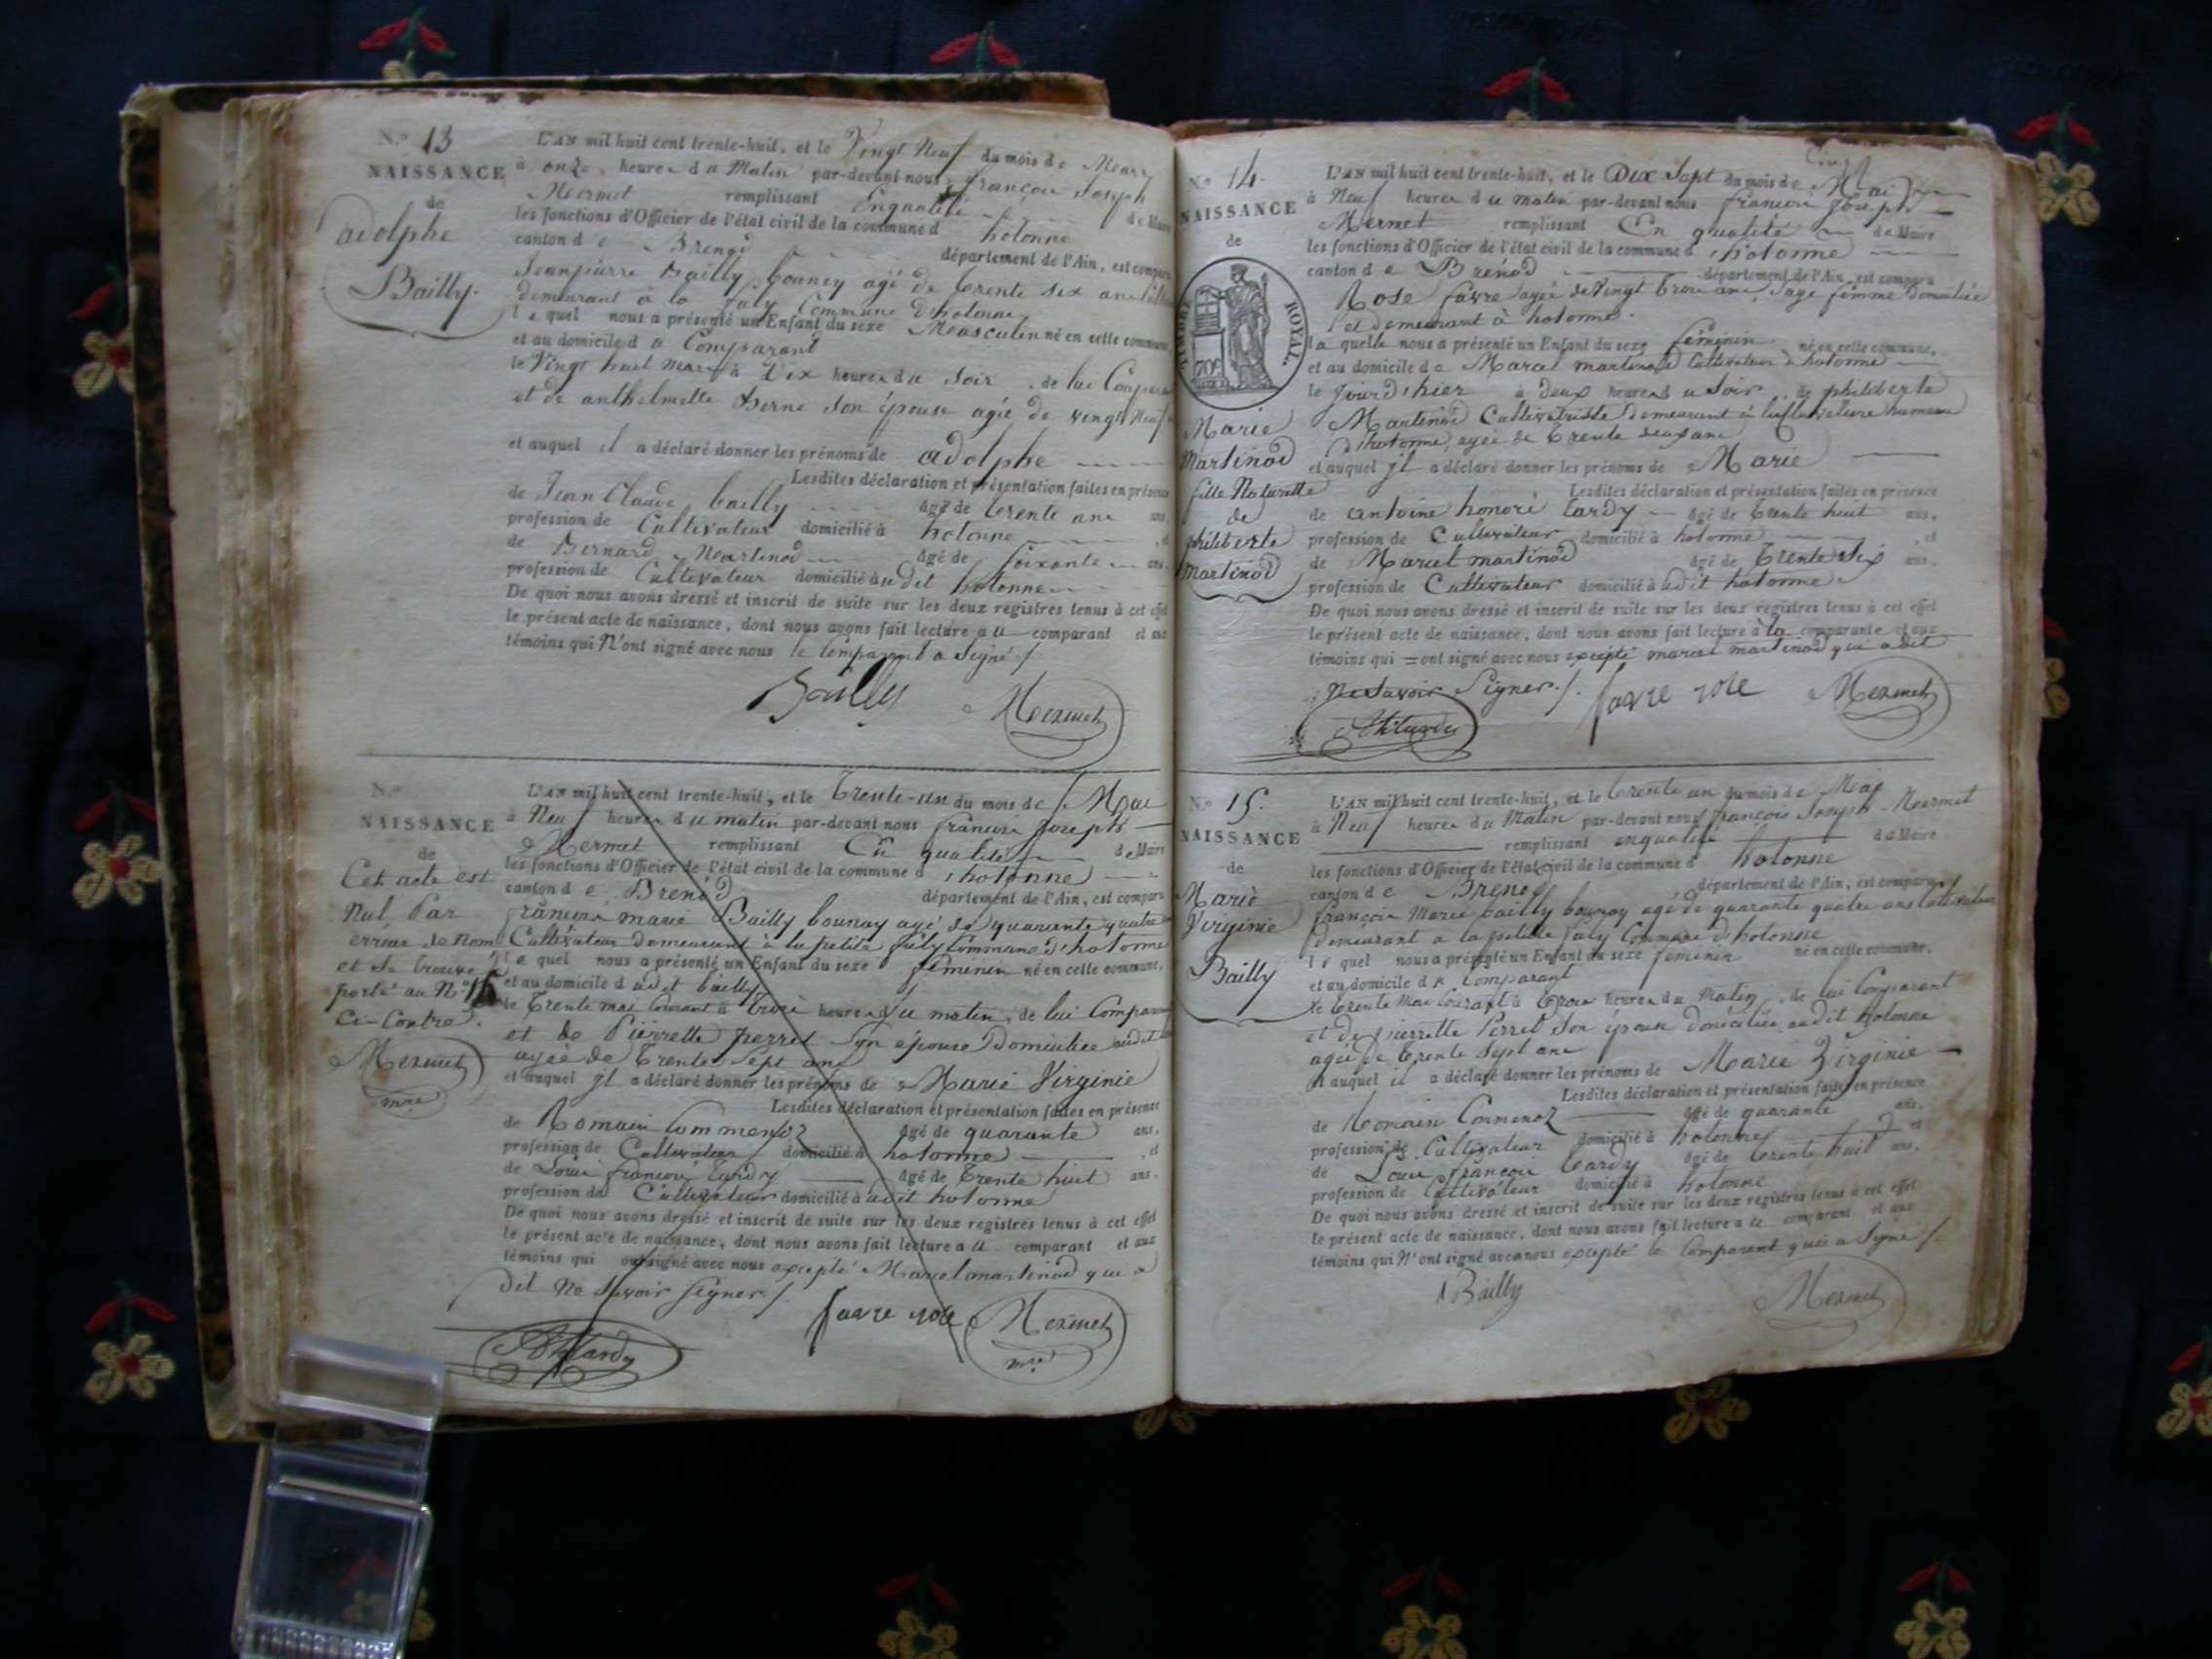 N.º 13
NAISSANCE
de
adolphe
Bailly.
L'AN mil huit cent trente-huit, et le Vingt Neuf du mois de Mars
à onze heures du Matin par-devant nous françois Joseph
Mermet remplissant Enqualité de Maire
les fonctions d'Officier de l'état civil de la commune d'hotonne
canton de département de l'Ain, est comparu
Jeanpierre Bailly bouney agé de trente six ans
demeurant à la faly Commune d'hotonne
le quel nous a présenté un Enfant du sexe Masculin né en cette commune
et au domicile du Comparant
le Vingt huit Mars à Dix heures du soir, de lui Comparant
et de anthelmette son épouse agée de vingt Neuf
et auquel il a déclaré donner les prénoms de adolphe
Lesdites déclaration et présentation faites en présence
de Jean Claude bailly âgé de trente ans
profession de Cultivateur domicilié à hotonne, et
de Bernard Martinod âgé de soixante ans,
profession de Cultivateur domicilié audit hotonne
De quoi nous avons dressé et inscrit de suite sur les deux registres tenus à cet effet
le présent acte de naissance, dont nous avons fait lecture au comparant et aux
témoins qui N'ont signé avec nous le Comparant a Signé /
Bailly Mermet
N.º
NAISSANCE
de
Cet acte est
Nul Par
erreur de Nom
et se trouve
porté au N.º 15
Ci-Contre.
Mermet
mre
L'AN mil huit cent trente-huit, et le trente-un du mois de Mai
à Neuf heures du matin par-devant nous françois Joseph
Mermet remplissant En qualité de Maire
les fonctions d'Officier de l'état civil de la commune d'hotonne
canton de Brénod département de l'Ain, est comparu
françois marie Bailly bounay agé de quarante quatre
Cultivateur demeurant à la petite faly Commune d'hotonne
le quel nous a présenté un Enfant du sexe féminin né en cette commune,
et au domicile dudit bailly
le trente mai Courant à trois heures du matin, de lui Comparant
et de Pierrette perret son épouse Domiciliée audit
agée de trente sept ans
et auquel il a déclaré donner les prénoms de Marie Virginie
Lesdites déclaration et présentation faites en présence
de Romain âgé de quarante ans,
profession de Cultivateur domicilié à hotonne, et
de Louis françois tardy âgé de trente huit ans.
profession de Cultivateur domicilié audit hotonne
De quoi nous avons dressé et inscrit de suite sur les deux registres tenus à cet effet
le présent acte de naissance, dont nous avons fait lecture au comparant et aux
témoins qui ont signé avec nous excepté Marcel martinod qui a
dit Ne Savoir signer /
favre rose Mermet
mre
N.º 14.
NAISSANCE
de
TIMBRE ROYAL.
70c
Marie
Martinod
fille Naturelle
de
philiberte
Martinod
L'AN mil huit cent trente-huit, et le Dix Sept du mois de Mai
à Neuf heures du matin par-devant nous françois Joseph
Mermet remplissant En qualité de Maire
les fonctions d'Officier de l'état civil de la commune d'hotonne
canton de Brénod département de l'Ain, est comparu
Rose favre agée de Vingt trois ans, sage femme Domiciliée
et demeurant à hotonne.
la quelle nous a présenté un Enfant du sexe féminin né en cette commune,
et au domicile de Marcel martinod Cultivateur à hotonne
le Jourd'hier à deux heures du Soir, de philiberte
Martinod Cultivatrice Demeurant à hameau
d'hotonne, agée de trente deux ans
et auquel il a déclaré donner les prénoms de Marie
Lesdites déclaration et présentation faites en présence
de antoine honoré tardy âgé de trente huit ans,
profession de Cultivateur domicilié à hotonne, et
de Marcel martinod âgé de trente Six ans,
profession de Cultivateur domicilié audit hotonne
De quoi nous avons dressé et inscrit de suite sur les deux registres tenus à cet effet
le présent acte de naissance, dont nous avons fait lecture à la comparante et aux
témoins qui = ont signé avec nous excepté marcel martinod qui a dit
Ne Savoir Signer. /. favre rose Mermet
N.º 15.
NAISSANCE
de
Marie
Virginie
Bailly
L'AN mil huit cent trente-huit, et le trente un du mois de Mai
à Neuf heures du Matin par-devant nous françois Joseph Mermet
remplissant enqualité de Maire
les fonctions d'Officier de l'état civil de la commune d'hotonne
canton de Brenod département de l'Ain, est comparu
françois Marie bailly bounay agé de quarante quatre ans Cultivateur
demeurant a la petite faly Commune d'hotonne
le quel nous a présenté un Enfant du sexe feminin né en cette commune,
et au domicile du Comparant
le trente Mai Courant à trois heures du Matin, de lui Comparant
et de pierrette Perret Son épouse domiciliée audit hotonne
agée de trente Sept ans
et auquel il a déclaré donner les prénoms de Marie Virginie
Lesdites déclaration et présentation faites en présence
de Romain âgé de quarante ans,
profession de Cultivateur domicilié à hotonne, et
de Louis françois tardy âgé de trente huit ans,
profession de Cultivateur domicilié à hotonne
De quoi nous avons dressé et inscrit de suite sur les deux registres tenus à cet effet
le présent acte de naissance, dont nous avons fait lecture au comparant et aux
témoins qui N'ont signé avec nous excepté le Comparant qui a Signé /.
Bailly Mermet